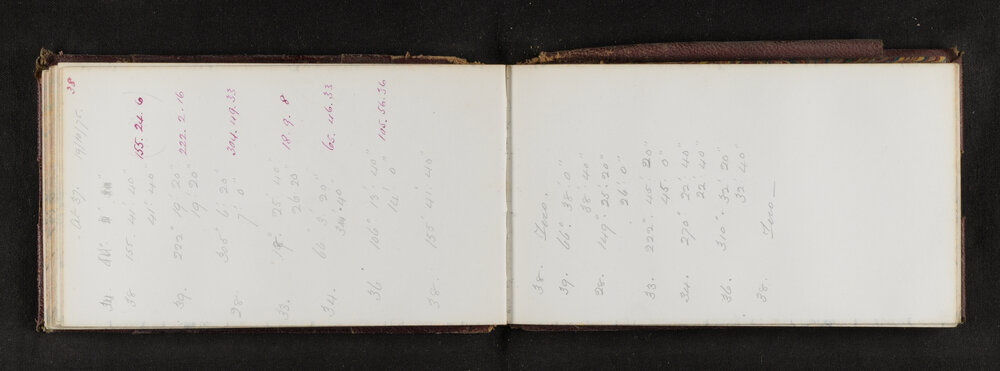 At 37. 19/10/75. 38
34
38 155° 41' 40" 155. 24. 6
41' 40"
39. 222° 19' 20" 222. 2. 16
19' 20"
28. 305° 6' 20" 304. 49. 33
7' 0"
33. 18° 25' 40" 18. 9. 8
26 20"
34. 66° 3' 20" 65. 46. 33
36 106° 13' 40" 105. 56. 36
14' 0"
38. 155° 41' 40"
38. Zero.
39. 66° 38' 0"
38' 40"
28. 149° 25' 20"
26' 0"
33. 222° 45' 20"
45. 0"
34. 270° 22' 40"
22' 40"
36. 310° 32' 20"
32' 40"
38. Zero —